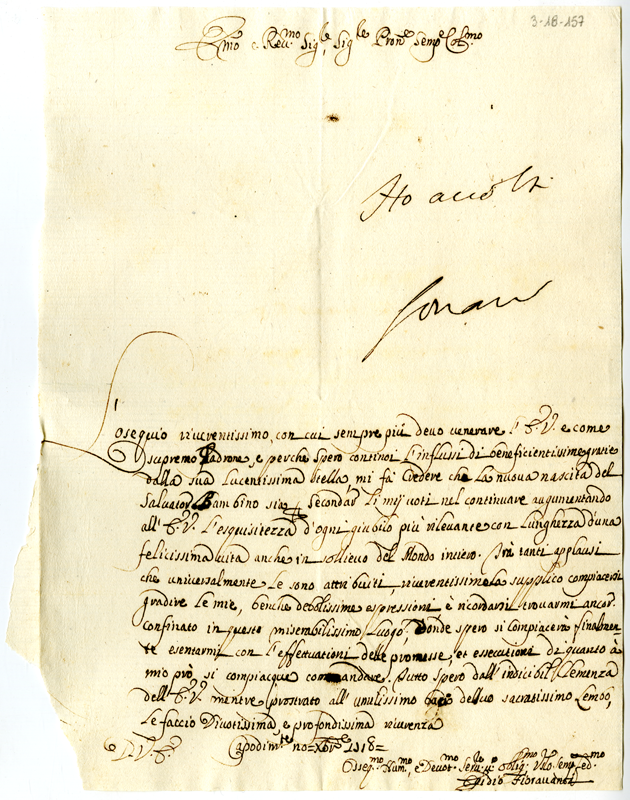 3-18-157
E.mo e Rev.mo Sig.le, Sig.le Pron.e Semp.e Col.mo
Ho
L'osequio riverentissimo, con cui sempre più devo venerare l'E.V. e come
supremo Padrone, e perche spero continoi l'influssi di beneficientissime gratie
dalla sua Lucentissima stella, mi fà credere che La nuova nascita del
Salvator Bambino sia secondar' Li mij voti nel continuare augumentando
all'E.V. L'esquisitezza d'ogni giubilo più rilevante con Lunghezza d'una
felicissima vita anche in sollievo del Mondo intiero. Frà tanti applausi
che universalmente Le sono attribuiti, riverentissime La supplico compiacersi
gradire Le mie, benche debolissime espressioni e ricordarsi trovarmi ancor
confinato in questo miserabilissimo Luogo, donde spero si compiacerà finalmen-
te esentarmi con l'effettuationi delle promesse, et essecutioni di quanto à
mio prò si compiacque commandare. Tutto spero dall'indicibil Clemenza
dell'E.V. mentre prostrato all'umilissimo del suo sacratissimo Lembo,
Le faccio Divotissima, e profondissima riverenza
D.V.E. Capodim.te
Osseq.mo Hum.mo, e Devot.mo Ser.re
Egidio Fioravanti